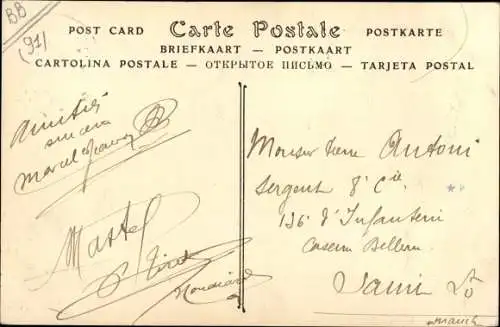 BB
(91)
POST CARD Carte Postale POSTKARTE
BRIEFKAART — POSTKAART
CARTOLINA POSTALE — ОТКРЫТОЕ ПИСЬМО — TARJETA POSTAL
Amitiés
Marcel
Martel
Monsieur Antoni
Sergent 8e Cie
136 d'Infanterie
Caserne Bellevue
Saint Lô
Manche